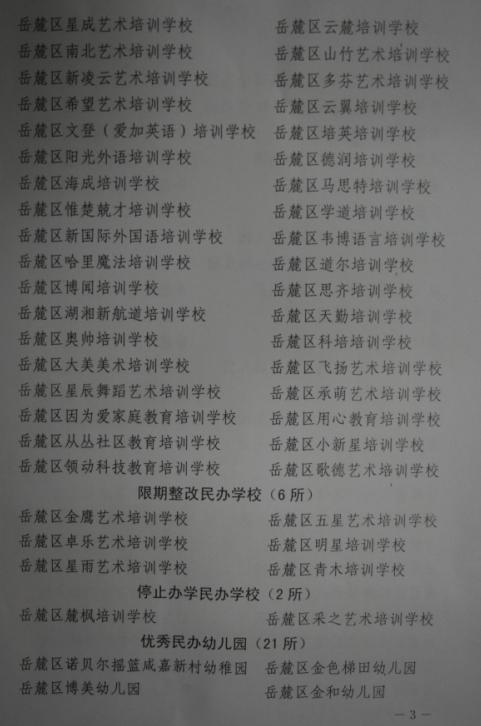 岳麓区星成艺术培训学校 岳麓区云麓培训学校
岳麓区南北艺术培训学校 岳麓区山竹艺术培训学校
岳麓区新凌云艺术培训学校 岳麓区多芬艺术培训学校
岳麓区希望艺术培训学校 岳麓区云翼培训学校
岳麓区文登（爱加英语）培训学校 岳麓区培英培训学校
岳麓区阳光外语培训学校 岳麓区德润培训学校
岳麓区海成培训学校 岳麓区马思特培训学校
岳麓区惟楚兢才培训学校 岳麓区学道培训学校
岳麓区新国际外国语培训学校 岳麓区韦博语言培训学校
岳麓区哈里魔法培训学校 岳麓区道尔培训学校
岳麓区博闻培训学校 岳麓区思齐培训学校
岳麓区湖湘新航道培训学校 岳麓区天勤培训学校
岳麓区奥帅培训学校 岳麓区科培培训学校
岳麓区大美美术培训学校 岳麓区飞扬艺术培训学校
岳麓区星辰舞蹈艺术培训学校 岳麓区承萌艺术培训学校
岳麓区因为爱家庭教育培训学校 岳麓区用心教育培训学校
岳麓区从丛社区教育培训学校 岳麓区小新星培训学校
岳麓区领动科技教育培训学校 岳麓区歌德艺术培训学校
限期整改民办学校（6所）
岳麓区金鹰艺术培训学校 岳麓区五星艺术培训学校
岳麓区卓乐艺术培训学校 岳麓区明星培训学校
岳麓区星雨艺术培训学校 岳麓区青木培训学校
停止办学民办学校（2所）
岳麓区麓枫培训学校 岳麓区采之艺术培训学校
优秀民办幼儿园（21所）
岳麓区诺贝尔摇篮咸嘉新村幼稚园 岳麓区金色梯田幼儿园
岳麓区博美幼儿园 岳麓区金和幼儿园
—3—